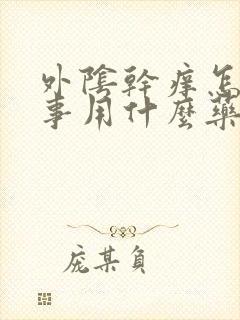 外陰幹癢怎
事用什麼藥
庞某負